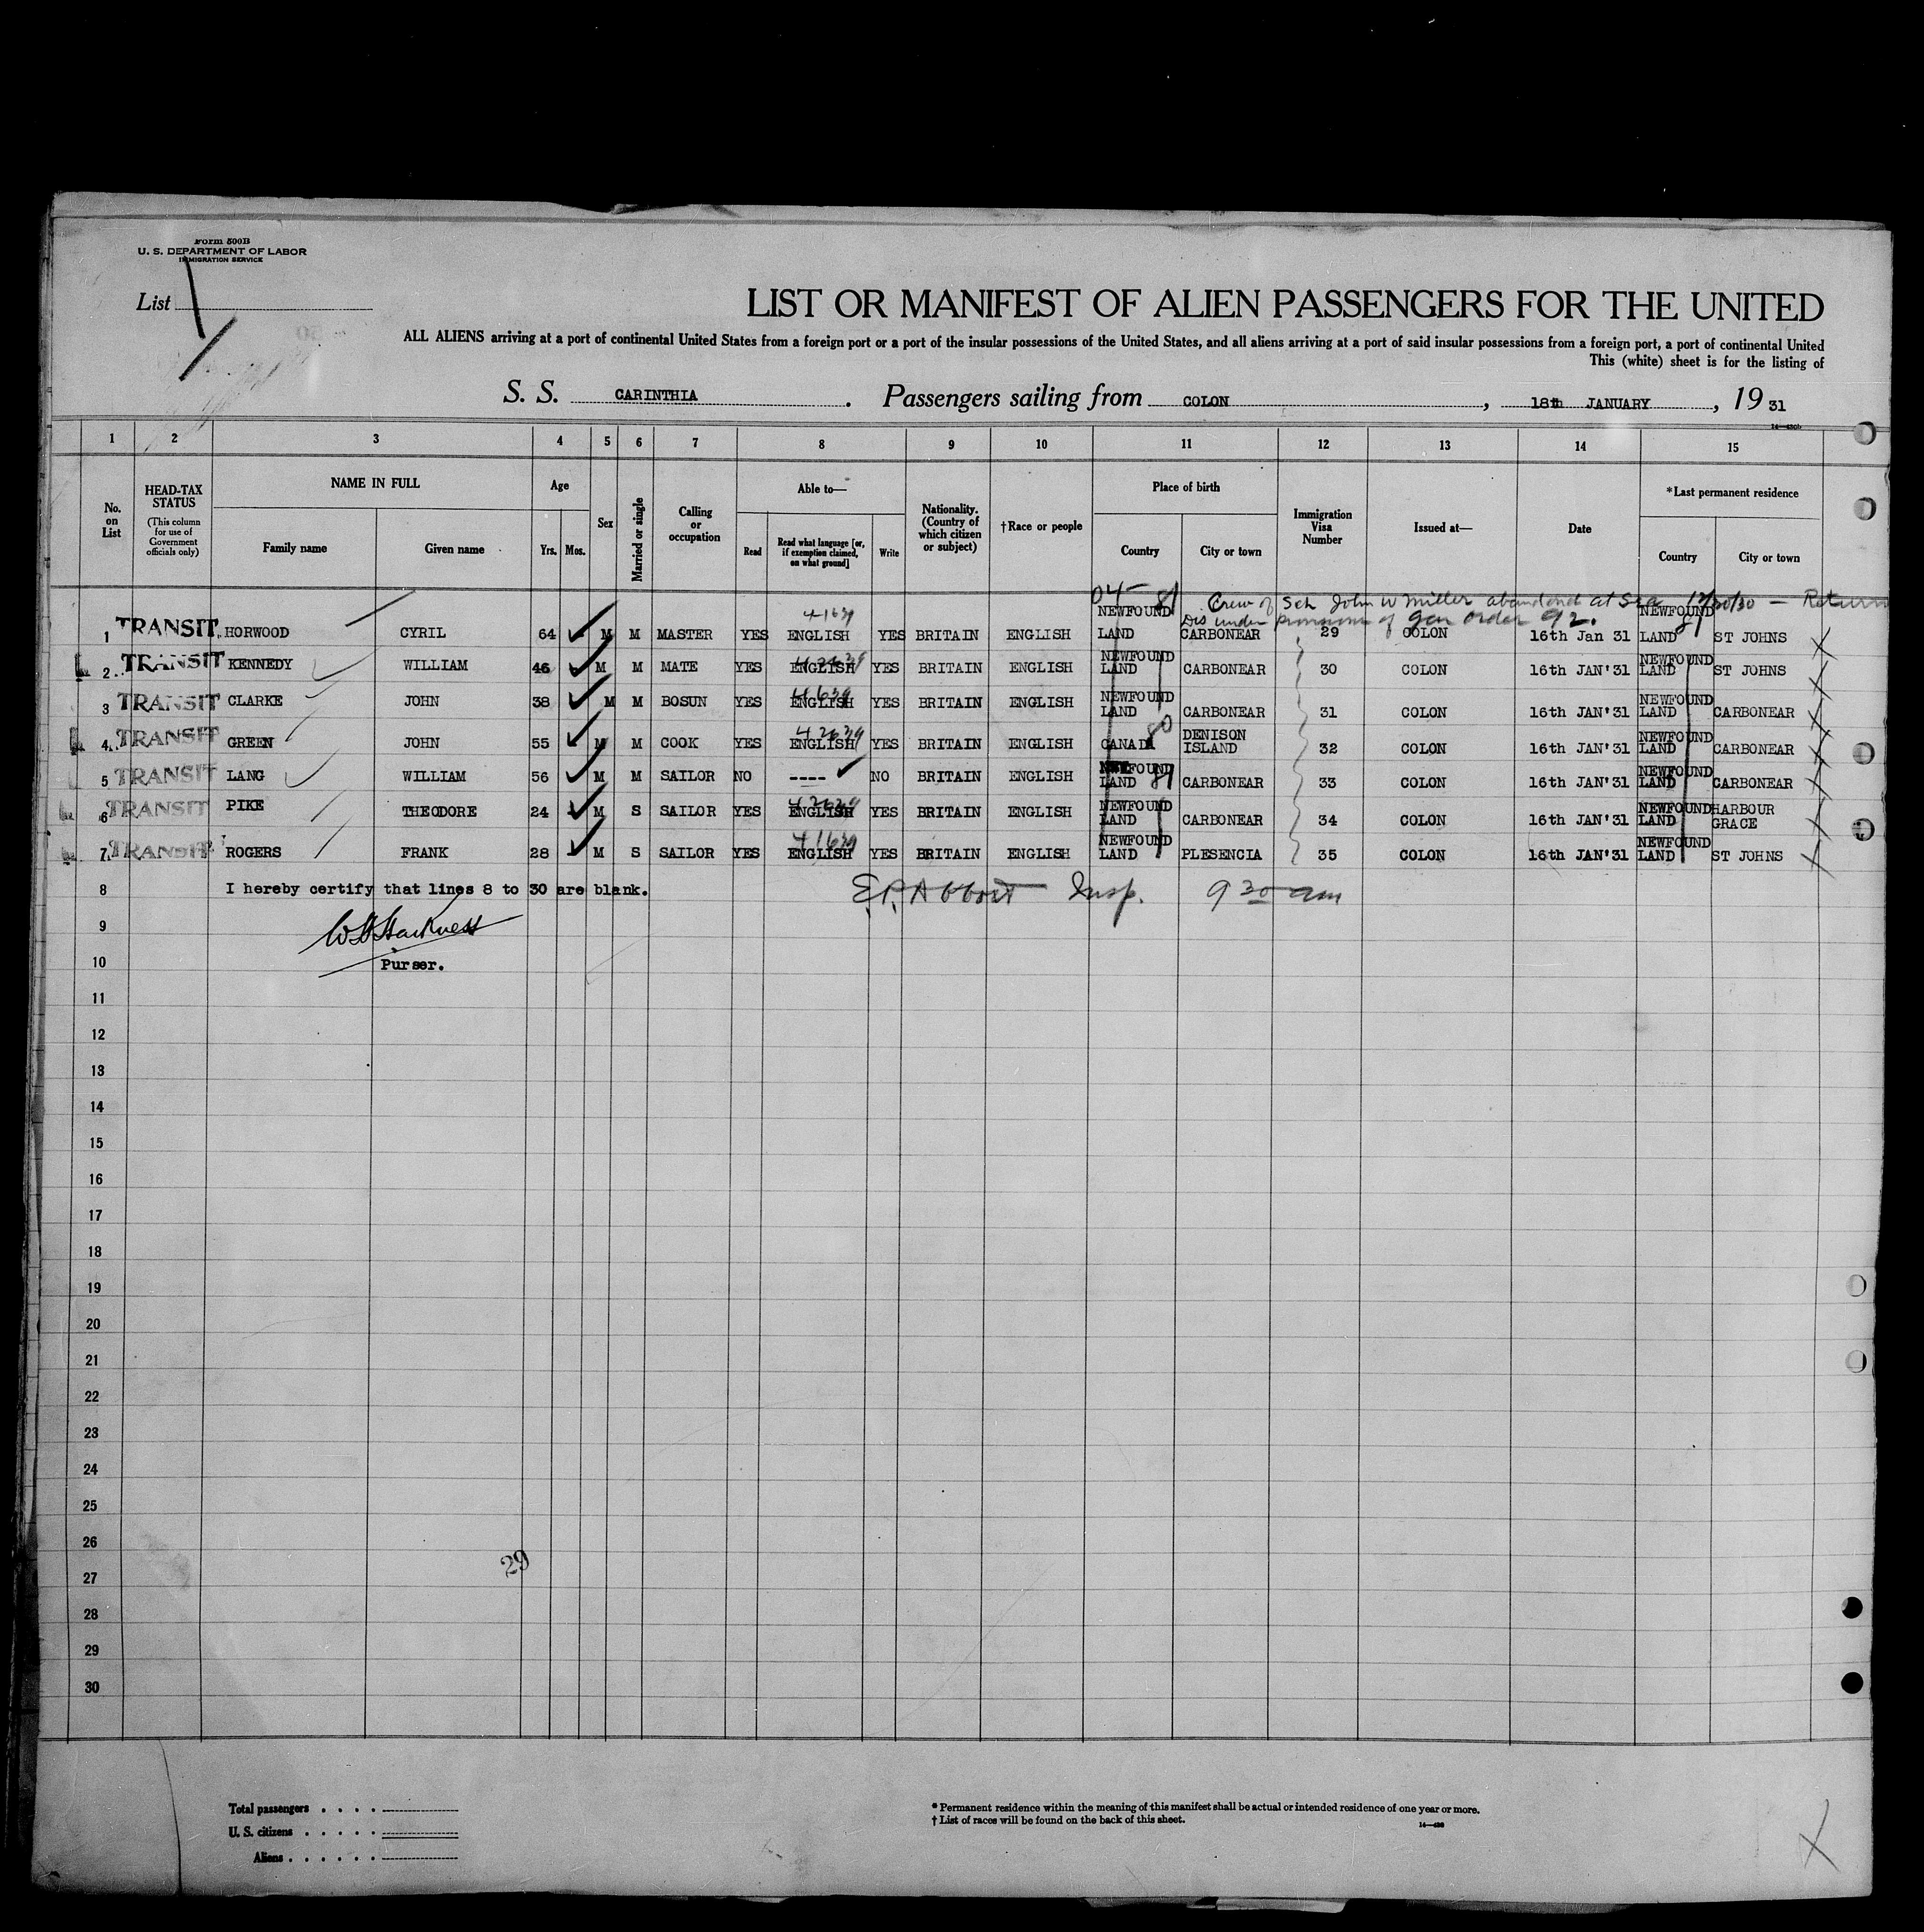 Form 500B
U. S. DEPARTMENT OF LABOR
IMMIGRATION SERVICE
List
LIST OR MANIFEST OF ALIEN PASSENGERS FOR THE UNITED
ALL ALIENS arriving at a port of continental United States from a foreign port or a port of the insular possessions of the United States, and all aliens arriving at a port of said insular possessions from a foreign port, a port of continental United
This (white) sheet is for the listing of
S. S. CARINTHIA. Passengers sailing from COLON, 18th JANUARY, 19 31
1 2 3 4 5 6 7 8 9 10 11 12 13 14 15
No. on List
HEAD-TAX STATUS (This column for use of Government officials only)
NAME IN FULL
Family name
Given name
Age
Yrs. Mos.
Sex
Married or single
Calling or occupation
Able to—
Read
Read what language [or, if exemption claimed, on what ground]
Write
Nationality. (Country of which citizen or subject)
†Race or people
Place of birth
Country
City or town
Immigration Visa Number
Issued at—
Date
*Last permanent residence
Country
City or town
04 81 Crew of Sch John W Miller abandoned at Sea 12/30/30 — Return
Dis under provisions of Gen Order 92.
1 TRANSIT HORWOOD CYRIL 64 M M MASTER YES ENGLISH YES BRITAIN ENGLISH NEWFOUND LAND CARBONEAR 29 COLON 16th Jan 31 NEWFOUND LAND ST JOHNS X
2 TRANSIT KENNEDY WILLIAM 46 M M MATE YES ENGLISH YES BRITAIN ENGLISH NEWFOUND LAND CARBONEAR 30 COLON 16th JAN'31 NEWFOUND LAND ST JOHNS X
3 TRANSIT CLARKE JOHN 38 M M BOSUN YES ENGLISH YES BRITAIN ENGLISH NEWFOUND LAND CARBONEAR 31 COLON 16th JAN'31 NEWFOUND LAND CARBONEAR X
4 TRANSIT GREEN JOHN 55 M M COOK YES ENGLISH YES BRITAIN ENGLISH CANADA 80 DENISON ISLAND 32 COLON 16th JAN'31 NEWFOUND LAND CARBONEAR X
5 TRANSIT LANG WILLIAM 56 M M SAILOR NO ---- NO BRITAIN ENGLISH NEWFOUND LAND 81 CARBONEAR 33 COLON 16th JAN'31 NEWFOUND LAND CARBONEAR X
6 TRANSIT PIKE THEODORE 24 M S SAILOR YES ENGLISH YES BRITAIN ENGLISH NEWFOUND LAND CARBONEAR 34 COLON 16th JAN'31 NEWFOUND LAND HARBOUR GRACE X
7 TRANSIT ROGERS FRANK 28 M S SAILOR YES ENGLISH YES BRITAIN ENGLISH NEWFOUND LAND PLESENCIA 35 COLON 16th JAN'31 NEWFOUND LAND ST JOHNS X
8 I hereby certify that lines 8 to 30 are blank. E.P. Abbott Insp. 9 30 am
9
10 Purser.
11
12
13
14
15
16
17
18
19
20
21
22
23
24
25
26
29
27
28
29
30
Total passengers . . . .
U. S. citizens . . . . .
Aliens . . . . . .
* Permanent residence within the meaning of this manifest shall be actual or intended residence of one year or more.
† List of races will be found on the back of this sheet.